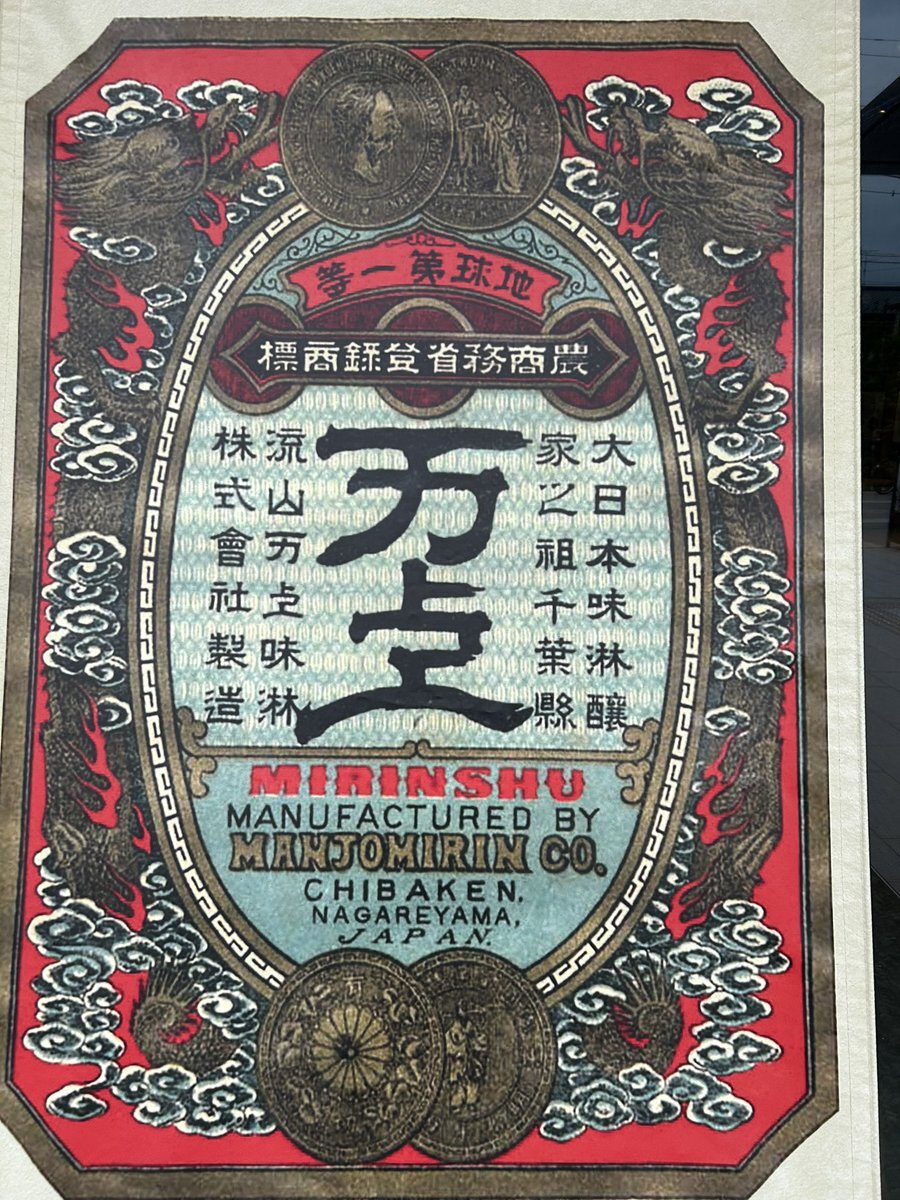 地球第一等
農商務省登録商標
大日本味淋釀
家之祖千葉縣
万上
流山万上味淋
株式會社製造
MIRINSHU
MANUFACTURED BY
MANJOMIRIN CO.
CHIBAKEN.
NAGAREYAMA,
JAPAN.